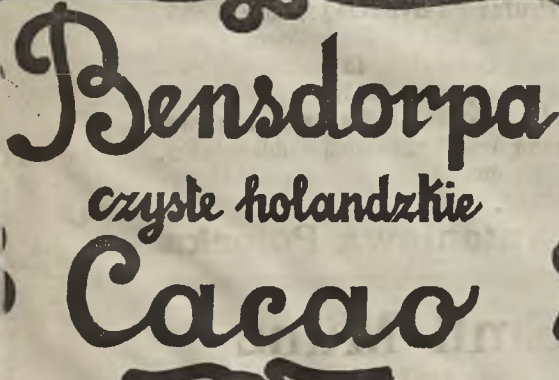 Bensdorpa
czyste holandzkie
Cacao